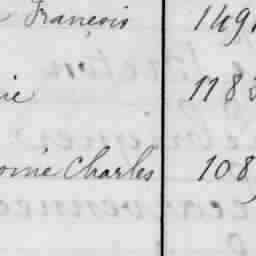 François 149
ie 118
oine Charles 108